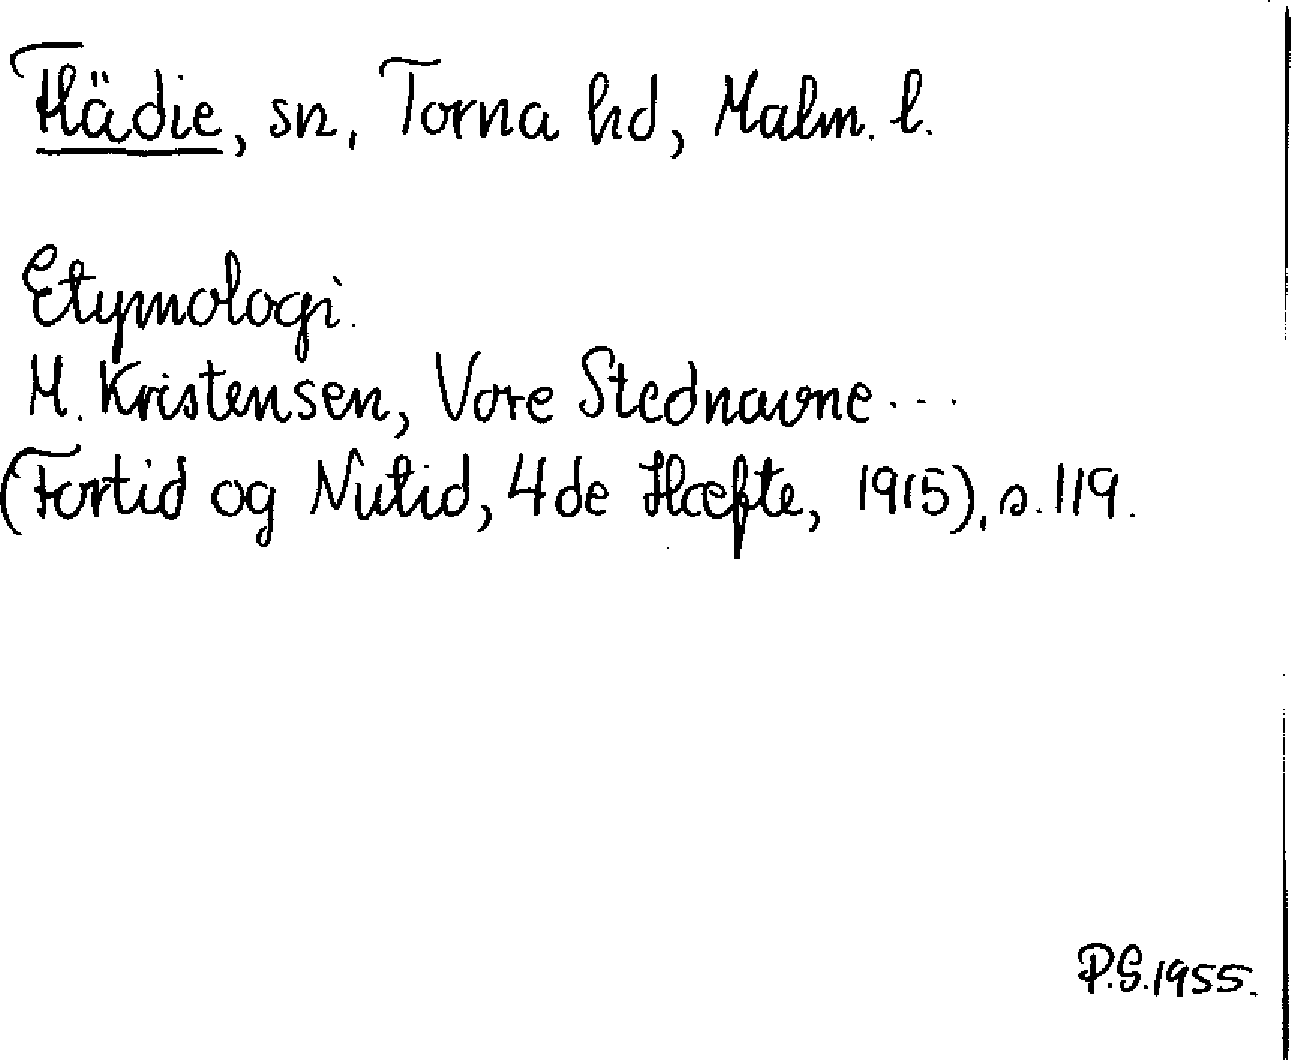 Flädie, sn, Torna hd, Malm. l.
Etymologi.
M. Kristensen, Vore Stednavne...
(Fortid og Nutid, 4de Hæfte, 1915), s. 119.
P.S. 1955.